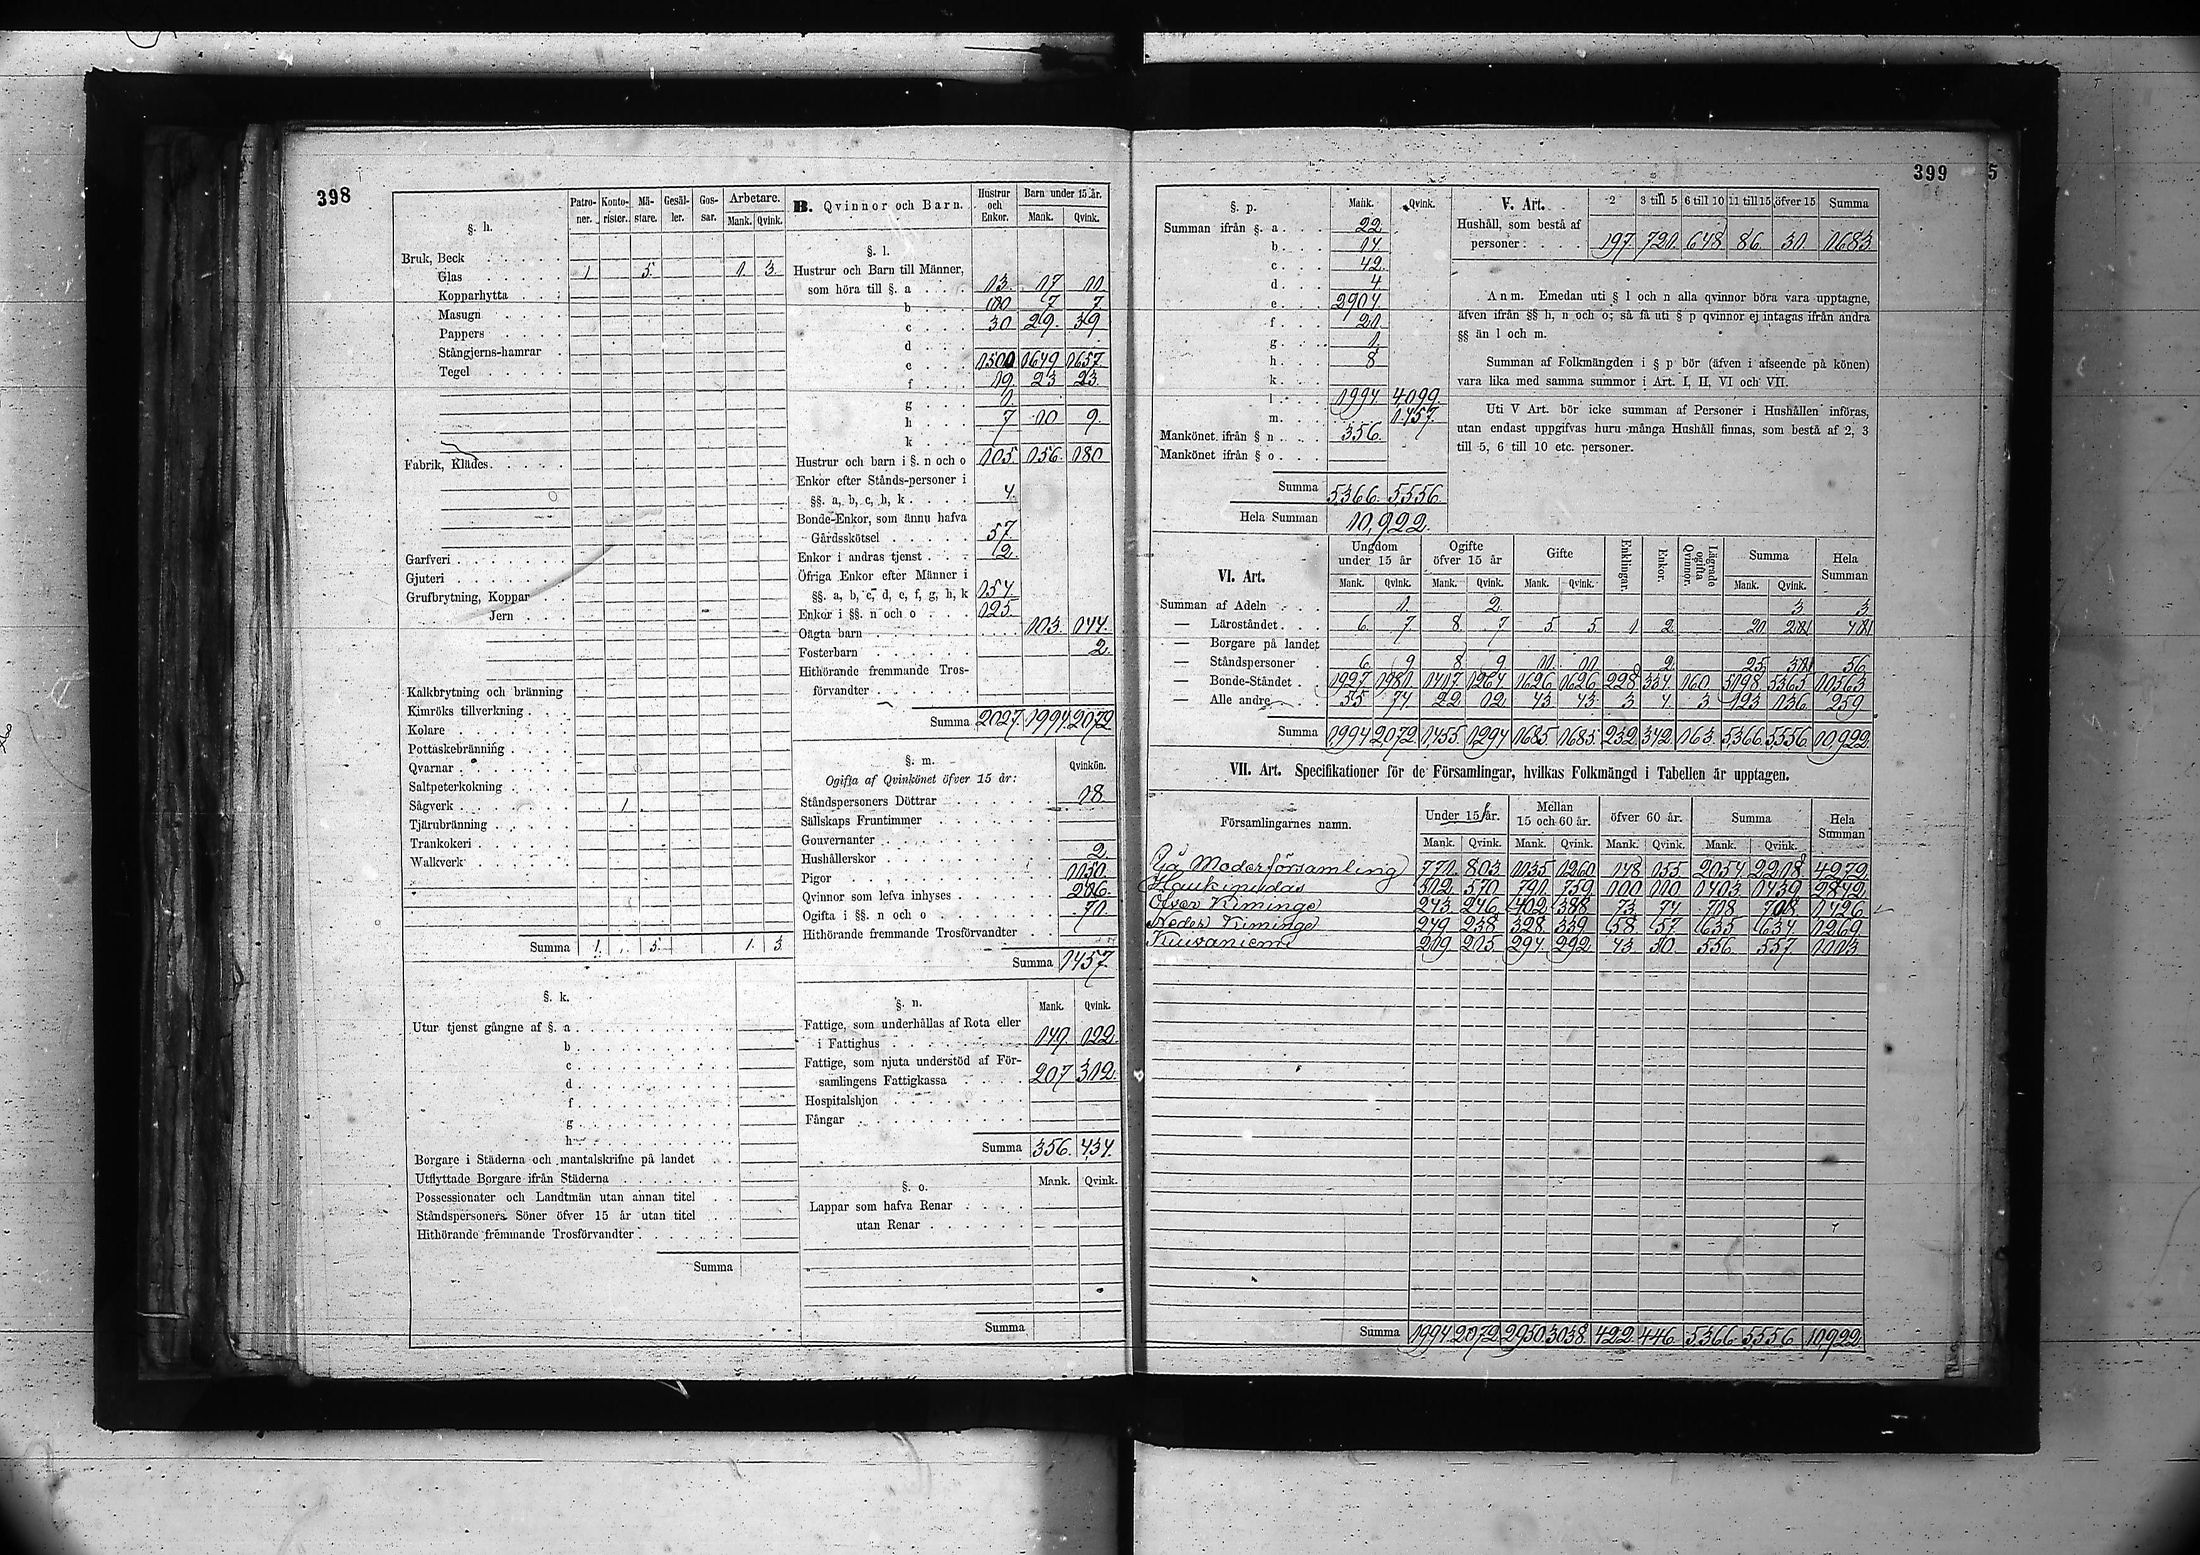 398
§. h.
Patroner. Kontorister. Mästare. Gesäller. Gossar. Arbetare. Mank. Qvink.
Bruk, Beck
Glas 1 5. 1 3.
Kopparhytta
Masugn
Pappers
Stångjerns-hamrar
Tegel
Fabrik, Klädes
Garfveri
Gjuteri
Grufbrytning, Koppar
Jern
Kalkbrytning och bränning
Kimröks tillverkning
Kolare
Pottaskebränning
Qvarnar
Saltpeterkokning
Sågverk 1
Tjärubränning
Trankokeri
Walkverk
Summa 1. 5. 1. 3.
§. k.
Utur tjenst gångne af §. a
b
c
d
f
g
h
Borgare i Städerna och mantalskrifne på landet
Utflyttade Borgare ifrån Städerna
Possessionater och Landtmän utan annan titel
Ståndspersoners Söner öfver 15 år utan titel
Hithörande fremmande Trosförvandter
Summa
B. Qvinnor och Barn. Hustrur och Enkor. Barn under 15 år. Mank. Qvink.
§. l.
Hustrur och Barn till Männer,
som höra till §. a 13. 17 11
b 7 7
c 30 29. 39
d
e 1500 1649 1657
f 19 23 23
g 1.
h 7 10 9.
k
Hustrur och barn i §. n och o 105. 156. 180
Enkor efter Stånds-personer i
§§. a, b, c, h, k 4.
Bonde-Enkor, som ännu hafva
Gårdsskötsel 57.
Enkor i andras tjenst 2.
Öfriga Enkor efter Männer i
§§. a, b, c, d, e, f, g, h, k 154.
Enkor i §§. n och o 125.
Oägta barn 103. 144.
Fosterbarn 2.
Hithörande fremmande Trosförvandter
Summa 2027. 1994. 2072
§. m.
Ogifta af Qvinkönet öfver 15 år: Qvinkön.
Ståndspersoners Döttrar 18.
Sällskaps Fruntimmer
Gouvernanter
Hushållerskor 2.
Pigor
Qvinnor som lefva inhyses
Ogifta i §§. n och o 70.
Hithörande fremmande Trosförvandter
Summa 1457
§. n. Mank. Qvink.
Fattige, som underhållas af Rota eller
i Fattighus 149. 122.
Fattige, som njuta understöd af Församlingens Fattigkassa 207 312.
Hospitalshjon
Fångar
Summa 356. 434.
§. o. Mank. Qvink.
Lappar som hafva Renar
utan Renar
Summa
399 5
§. p. Mank. Qvink.
Summan ifrån §. a 22.
b 14.
c 42.
d 4
e 2904.
f 21.
g 1.
h 8
k
l 1994 4099.
m. 1457.
Mankönet ifrån § n 356.
Mankönet ifrån § o
Summa 5366. 5556.
Hela Summan 10,922.
V. Art. 2 3 till 5 6 till 10 11 till 15 öfver 15 Summa
Hushåll, som bestå af
personer: 197. 721. 648 86. 31. 1683.
Anm. Emedan uti § l och n alla qvinnor böra vara upptagne,
äfven ifrån §§ h, n och o; så få uti § p qvinnor ej intagas ifrån andra
§§ än l och m.
Summan af Folkmängden i § p bör (äfven i afseende på könen)
vara lika med samma summor i Art. I, II, VI och VII.
Uti V Art. bör icke summan af Personer i Hushållen införas,
utan endast uppgifvas huru många Hushåll finnas, som bestå af 2, 3
till 5, 6 till 10 etc. personer.
VI. Art. Ungdom under 15 år Ogifte öfver 15 år Gifte Enklingar. Enkor. Lägrade ogifta Qvinnor. Summa Hela Summan
Mank. Qvink. Mank. Qvink. Mank. Qvink. Mank. Qvink.
Summan af Adeln 1. 2. 3 3
— Läroståndet 6. 7 8. 7 5 5. 1 2. 20 21 41
— Borgare på landet
— Ståndspersoner 6 9 8. 9. 11. 11. 2. 25. 31 56
— Bonde-Ståndet 1927. 1981. 1417 1264 1626 1626 228 334 160. 5198. 5365 10563
— Alle andre 55 74 22 12 43 43. 3 4. 3 123 136 259
Summa 1994 2072 1455. 1294 1685 1685. 232 342 163. 5366 5556 10,922
VII. Art. Specifikationer för de Församlingar, hvilkas Folkmängd i Tabellen är upptagen.
Församlingarnes namn. Under 15 år. Mellan 15 och 60 år. öfver 60 år. Summa Hela Summan
Mank. Qvink. Mank. Qvink. Mank. Qvink. Mank. Qvink.
Ijå Moderförsamling 771. 803 1135 1260 148 155 2054 2218 4272
Haukipudas 512. 570 791 759 100 110 1403 1439 2842
Öfver Kiminge 243. 246 402 388 73 74 718 708 1426
Neder Kiminge 249 238 328 339 58 57. 635 634 1269
Kuivaniemi 219 215. 294. 292. 43 50 556 557 1113
Summa 1994 2072 2950 3038 422 446 5366 5556 10922